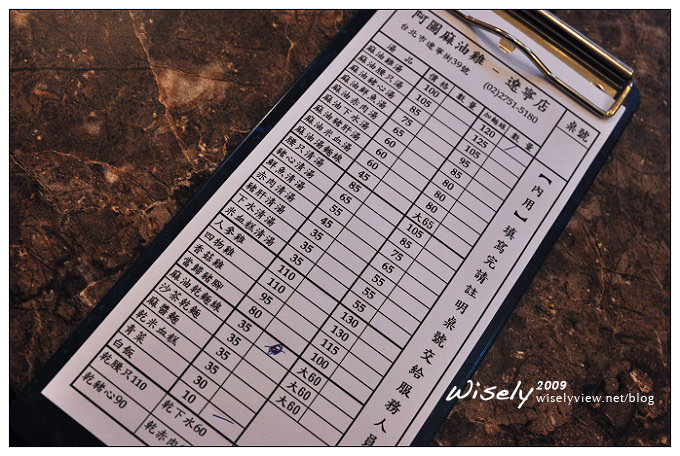 阿圖麻油雞 - 遼寧店
台北市遼寧街39號
(02)2751-5180
桌號
湯品 價格 數量 加麵線 數量
麻油雞湯
麻油腰只湯
麻油豬心湯
麻油鮮魚湯
麻油赤肉湯
麻油下水湯
麻油豬肝湯
麻油米血湯
麻油湯麵線
腰只清湯
豬心清湯
鮮魚清湯
赤肉清湯
豬肝清湯
下水清湯
米血糕清湯
人參雞
四物雞
香菇雞
當歸豬腳
麻油乾麵線
沙茶乾麵
麻醬麵
乾米血糕
青菜
白飯
乾腰只110
乾豬心90
100
105
85
75
65
60
60
45
85
65
55
45
35
35
110
110
95
80
35
35
35
30
10
乾下水60
乾赤肉
120
125
105
95
85
80
80
80
大65
105
85
75
65
55
55
130
130
115
100
大60
大60
大60
【內用】填寫完請註明桌號交給服務人員
Wisely 2009
wiselyview.net/blog